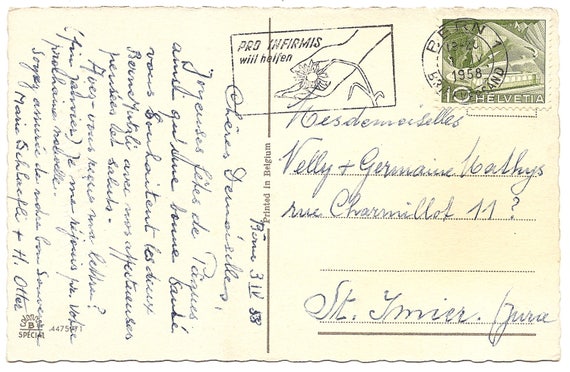 PRO INFIRMIS
will helfen
BERN 1
1958
HELVETIA
Berne 3 IV 58
Chères Demoiselles!
Joyeuses fêtes de Pâques
ainsi qu'une bonne santé
vous souhaitent les deux
avec nos affectueuses
pensées et saluts.
Avez-vous reçue ma lettre?
(fin janvier) Je me réjouis pr. votre
prochaine nouvelle.
Soyez assurée de notre bon Souvenir
Marie Schlaefli + H. Otter
Printed in Belgium
Mesdemoiselles
Nelly + Germaine Mathys
rue Charmillot 11?
St. Imier. (Jura
SPECIAL